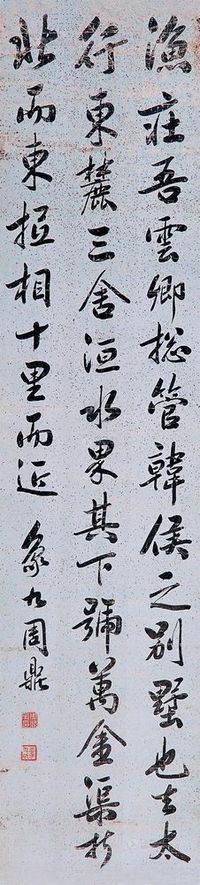 漁莊吾雲卿總管韓侯之別墅也去太
行東麓三舍洹水果其下號萬金渠折
北而東抵相十里而近
象九周鼎